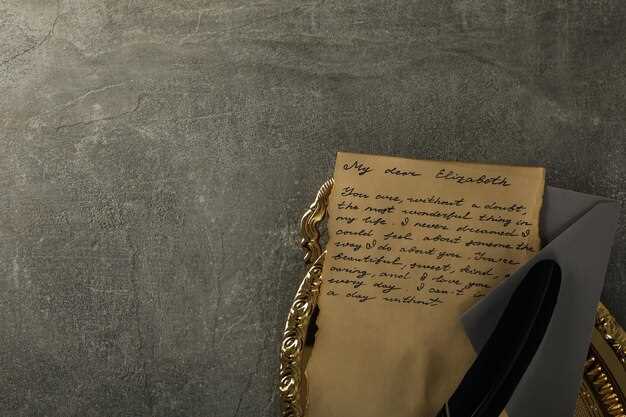 My dear Elizabeth
You are, without a doubt,
the most wonderful thing in
my life. I never dreamed I
could feel about someone the
way I do about you. You're
beautiful, sweet, kind
owing, and I love you
every day. I can't
a day without